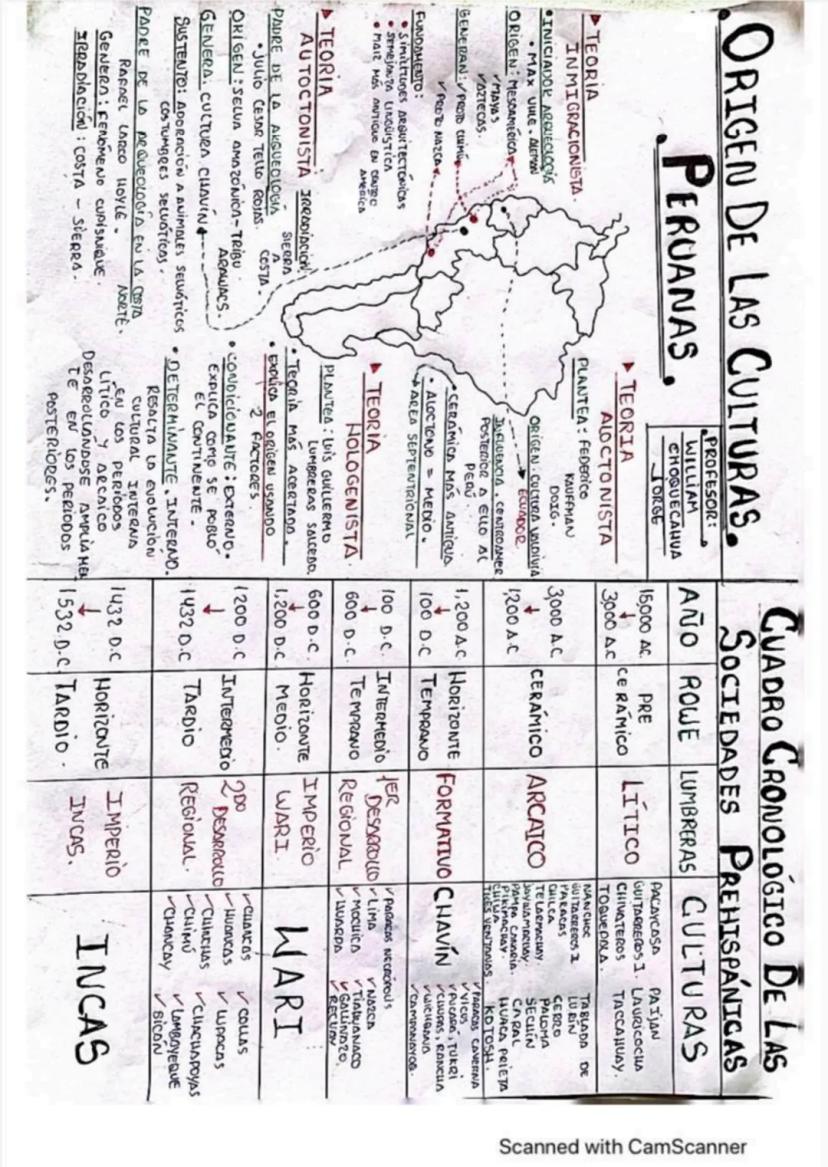 ORIGEN DE LAS CULTURAS.
PERUANAS.
PROFESOR:
WILLIAM
CHOQUECAHUA
JORGE
TEORIA
INMIGRACIONISTA.
INICIADOR ARQUEOLOGÍA
MAX UHLE. ALEMÁN
ORIGEN: MESOAMÉRICA
✓MAYAS
✓AZTECAS.
GENERAN: ✓PROTO CHIMÚ
✓PROTO NAZCA
FUNDAMENTO:
SIMILITUDES ARQUITECTÓNICAS
SEMEJANZA LINGÜÍSTICA
MAIZ MÁS ANTIGUO EN CENTRO
AMÉRICA
TEORIA
AUTOCTONISTA
PADRE DE LA ARQUEOLOGÍA
JULIO CESAR TELLO ROJAS.
IRRADIACIÓN:
SIERRA
A
COSTA.
ORIGEN: SELVA AMAZÓNICA-TRIBU
ARAWACS.
GENERA: CULTURA CHAVÍN
SUSTENTO: ADORACIÓN A ANIMALES SELVÁTICOS
COSTUMBRES SELVÁTICAS.
PADRE DE LA ARQUEOLOGÍA EN LA COSTA
NORTE.
RAFAEL LARCO HOYLE.
GENERA: FENÓMENO CUPISNIQUE.
IRRADIACIÓN: COSTA - SIERRA.
TEORIA
ALOCTONISTA
PLANTEA: FEDERICO
KAUFFMAN
DOIG.
ORIGEN: CULTURA VALDIVIA
ECUADOR
INFLUENCIA. CENTROAMER
POSTERIOR A ELLO AL
PERÚ.
CERÁMICA MÁS ANTIGUA
ALOCTONO = MEDIO.
AREA SEPTENTRIONAL
TEORIA
HOLOGENISTA.
PLANTEA: LUIS GUILLERMO
LUMBRERAS SALCEDO.
TEORÍA MÁS ACERTADA.
EXPLICA EL ORIGEN USANDO
2 FACTORES
CONDICIONANTE: EXTERNO.
EXPLICA COMO SE POBLÓ
EL CONTINENTE.
DETERMINANTE. INTERNO.
RESALTA LA EVOLUCIÓN
CULTURAL INTERNA
EN LOS PERÍODOS
LÍTICO Y ARCAICO
DESARROLLANDOSE AMPLIAMEN
TE EN LOS PERÍODOS
POSTERIORES.
CUADRO CRONOLÓGICO DE LAS
SOCIEDADES PREHISPÁNICAS
AÑO ROWE LUMBRERAS CULTURAS
15,000 AC.
3,000 A.C
PRE
CERÁMICO
LÍTICO
PACAYCASA PAIJAN
GUITARREROS 1 LAURICOCHA
CHIVATEROS TACCAHUAY.
TOQUEPALA.
3,000 A.C
1,200 A.C
CERÁMICO
ARCAICO
NANCHOC TABLADA DE
GUITARREROS 2 LURIN
PARACAS CERRO
CHILCA PALOMA
TELARMACHAY. SECHÍN
JAYWAMACHAY. CARAL
PAMPA CANARIO. HUACA PRIETA
PIKIMACHAY. KOTOSH.
CHILCA
TRES VENTANAS
1,200 A.C
100 D.C
HORIZONTE
TEMPRANO
FORMATIVO
CHAVÍN
✓PARACAS CAVERNA
✓VICUS
✓PUCARA, TUKRI
✓CHUPAS, RANCHA
✓WICHQANA
✓CAMPANAYOQ.
100 D.C.
600 D.C.
INTERMEDIO
TEMPRANO
1ER DESARROLLO
REGIONAL
✓PARACAS NECRÓPOLIS
✓LIMA ✓NAZCA
✓MOCHICA ✓TIAHUANACO
✓HUARPA ✓GALLINAZO.
✓RECUAY
600 D.C.
1,200 D.C
HORIZONTE
MEDIO.
IMPERIO
WARI.
WARI
1200 D.C
1432 D.C
INTERMEDIO
TARDIO
2DO DESARROLLO
REGIONAL.
✓CHANCAS ✓COLLAS
✓HUANCAS ✓LUPACAS
✓CHINCHAS ✓CHACHAPOYAS
✓CHIMÚ ✓LAMBAYEQUE
✓CHANCAY ✓SICÁN
1432 D.C
1532 D.C
HORIZONTE
TARDIO.
IMPERIO
INCAS.
INCAS
Scanned with CamScanner